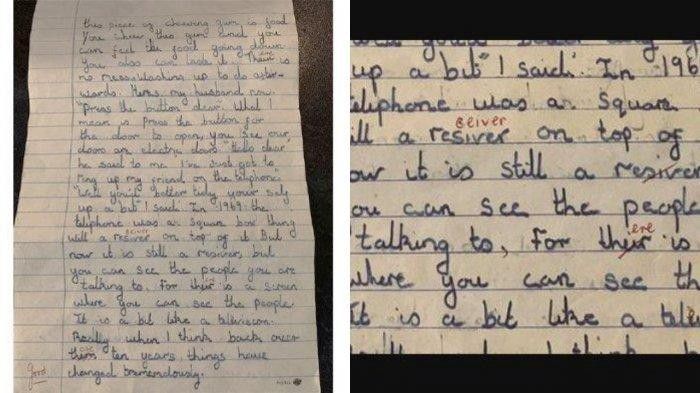 this piece of chewing gum is good
You chew this gum and you
can feel the food going down
you also can taste it. There is
no mess. Washing up to do after-
wards. Heres my husband now.
"Press the button dear. What I
mean is press the button for
the door to open, you see our
doors are electric doors "Hello dear"
he said to me I've just got to
ring up my friend on the telephone"
"Well you'd better tidy your self
up a bit" I said. In 1969 the
telephone was an square box thing
will a resiver on top of it But
ceiver
now it is still a resiver, but
you can see the people you are
talking to, for their is a screen
where you can see the people.
It is a bit like a television.
Really when I think back over
these ten years things have
changed tremendously.
good
up a bit" I said. In 196
eliphone was an square
ceiver
ill a resiver on top of
ow it is still a resiver
ou can see the people
ere
talking to, for their is
where you can see th
It is a bit like a telev